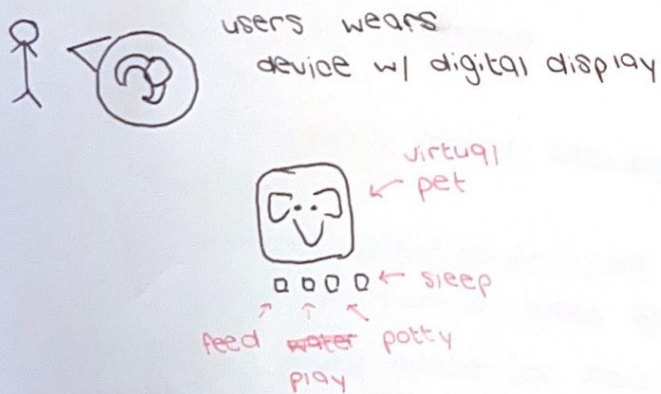 users wears
device w/ digital display
virtual
pet
sleep
feed water potty
play